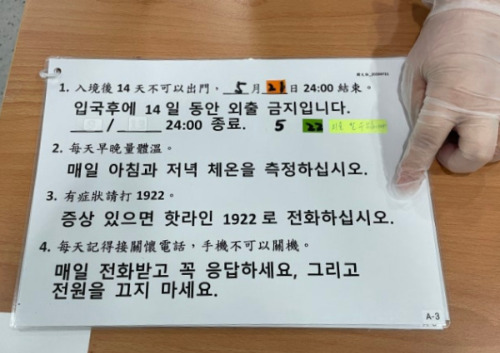 1. 入境後 14 天不可以出門，5月21日 24:00 結束。
입국후에 14 일 동안 외출 금지입니다.
/ 24:00 종료. 5 22
2. 每天早晚量體溫。
매일 아침과 저녁 체온을 측정하십시오.
3. 有症狀請打 1922。
증상 있으면 핫라인 1922 로 전화하십시오.
4. 每天記得接關懷電話，手機不可以關機。
매일 전화받고 꼭 응답하세요, 그리고
전원을 끄지 마세요.
A-3